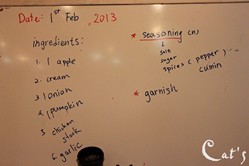 Date: 1st Feb, 2013
ingredients:
1. 1 apple
2. cream
3. 1 onion
4. 1 pumpkin
5. chicken
stock
6. garlic
* seasoning (n)
↳ salt
sugar
spices (pepper) ...
cumin
* garnish
Cat's